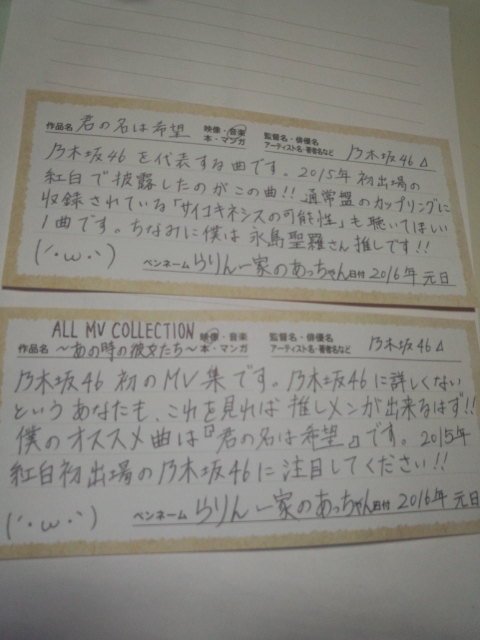 作品名 君の名は希望 映像・音楽 本・マンガ 監督名・俳優名 アーティスト名・著者名など 乃木坂46Δ
乃木坂46を代表する曲です。2015年初出場の
紅白で披露したのがこの曲!! 通常盤のカップリングに
収録されている「サイコキネシスの可能性」も聴いてほしい
1曲です。ちなみに僕は永島聖羅さん推しです!!
(´・ω・`) ペンネーム らりん一家のあっちゃん 日付 2016年 元日
作品名 ALL MV COLLECTION 映像・音楽 本・マンガ 監督名・俳優名 アーティスト名・著者名など 乃木坂46Δ
～あの時の彼女たち～
乃木坂46 初のMV集です。乃木坂46に詳しくない
というあなたも、これを見れば推しメンが出来るはず!!
僕のオススメ曲は『君の名は希望』です。2015年
紅白初出場の乃木坂46に注目してください!!
(´・ω・`) ペンネーム らりん一家のあっちゃん 日付 2016年 元日